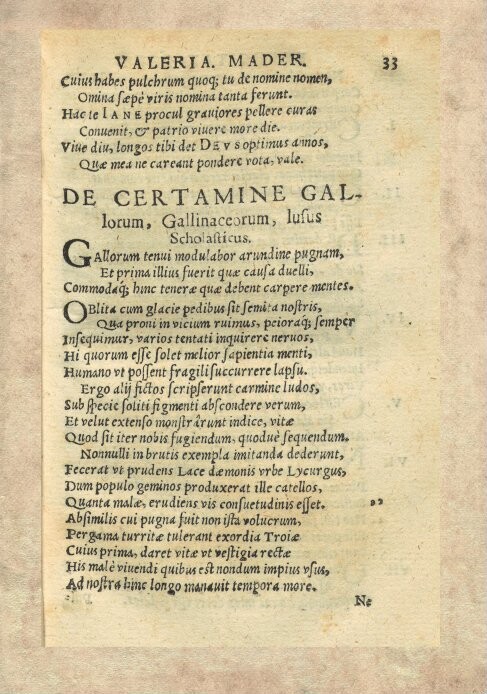 VALERIA. MADER. 33
Cuius habes pulchrum quoq; tu de nomine nomen,
Omina sæpè viris nomina tanta ferunt.
Hac te IANE procul grauiores pellere curas
Conuenit, & patrio viuere more die.
Viue diu, longos tibi det DEVS optimus annos,
Quæ mea ne careant pondere vota, vale.
DE CERTAMINE GAL-
lorum, Gallinaceorum, lusus
Scholasticus.
Gallorum tenui modulabor arundine pugnam,
Et prima illius fuerit quæ causa duelli,
Commodaq; hinc teneræ quæ debent carpere mentes.
Oblita cum glacie pedibus sit semita nostris,
Qua proni in vicium ruimus, peioraq; semper
Insequimur, varios tentati inquirere neruos,
Hi quorum esse solet melior sapientia menti,
Humano vt possent fragili succurrere lapsu.
Ergo alij fictos scripserunt carmine ludos,
Sub specie soliti figmenti abscondere verum,
Et velut extenso monstrârunt indice, vitæ
Quod sit iter nobis fugiendum, quoduè sequendum.
Nonnulli in brutis exempla imitanda dederunt,
Fecerat vt prudens Lace dæmonis vrbe Lycurgus,
Dum populo geminos produxerat ille catellos,
Quanta malæ, erudiens vis consuetudinis esset.
Absimilis cui pugna fuit non ista volucrum,
Pergama turritæ tulerant exordia Troiæ
Cuius prima, daret vitæ vt vestigia rectæ
His malè viuendi quibus est nondum impius vsus,
Ad nostra hinc longo manauit tempora more.
Ne